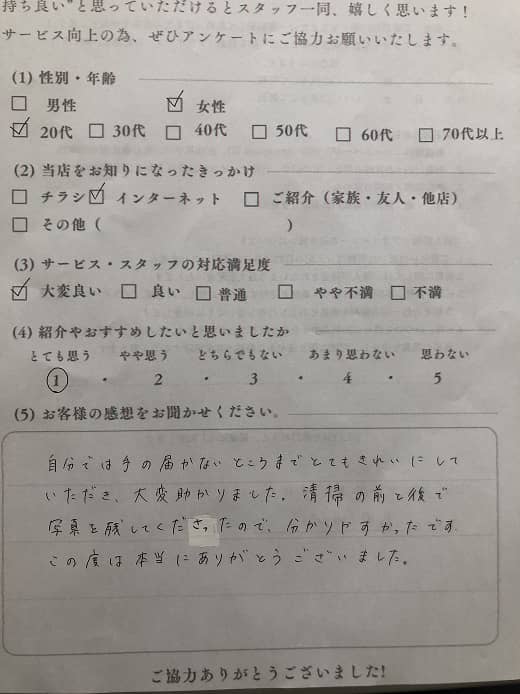 持ち良い"と思っていただけるとスタッフ一同、嬉しく思います!
サービス向上の為、ぜひアンケートにご協力お願いいたします。
(1) 性別・年齢
□ 男性 ☑ 女性
☑ 20代 □ 30代 □ 40代 □ 50代 □ 60代 □ 70代以上
(2) 当店をお知りになったきっかけ
□ チラシ ☑ インターネット □ ご紹介（家族・友人・他店）
□ その他（ ）
(3) サービス・スタッフの対応満足度
☑ 大変良い □ 良い □ 普通 □ やや不満 □ 不満
(4) 紹介やおすすめしたいと思いましたか
とても思う やや思う どちらでもない あまり思わない 思わない
① ・ 2 ・ 3 ・ 4 ・ 5
(5) お客様の感想をお聞かせください。
自分では手の届かないところまでとてもきれいにして
いただき、大変助かりました。清掃の前と後で
写真を残してくださったので、分かりやすかったです。
この度は本当にありがとうございました。
ご協力ありがとうございました!